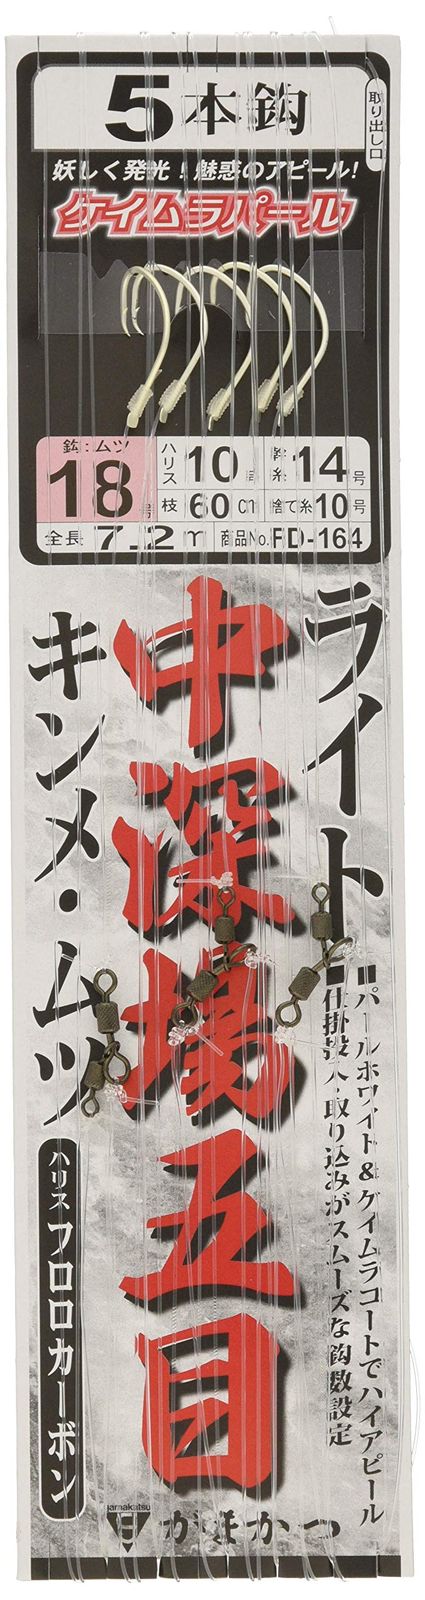 5本鈎
取り出し口
妖しく発光！魅惑のアピール！
ケイムラパール
鈎:ムツ 18号
ハリス 10号
幹糸 14号
枝 60cm
捨て糸 10号
全長 7.2m
商品No. FD-164
ライト
中深場五目
キンメ・ムツ
パールホワイト&ケイムラコートでハイアピール
仕掛投入・取り込みがスムーズな鈎数設定
ハリス フロロカーボン
gamakatsu
がまかつ